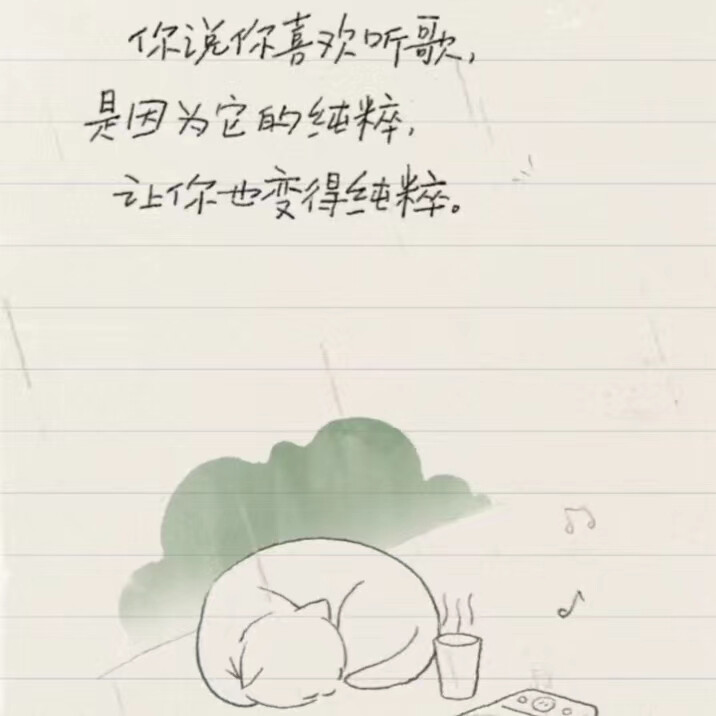 你说你喜欢听歌,
是因为它的纯粹,
让你也变得纯粹。